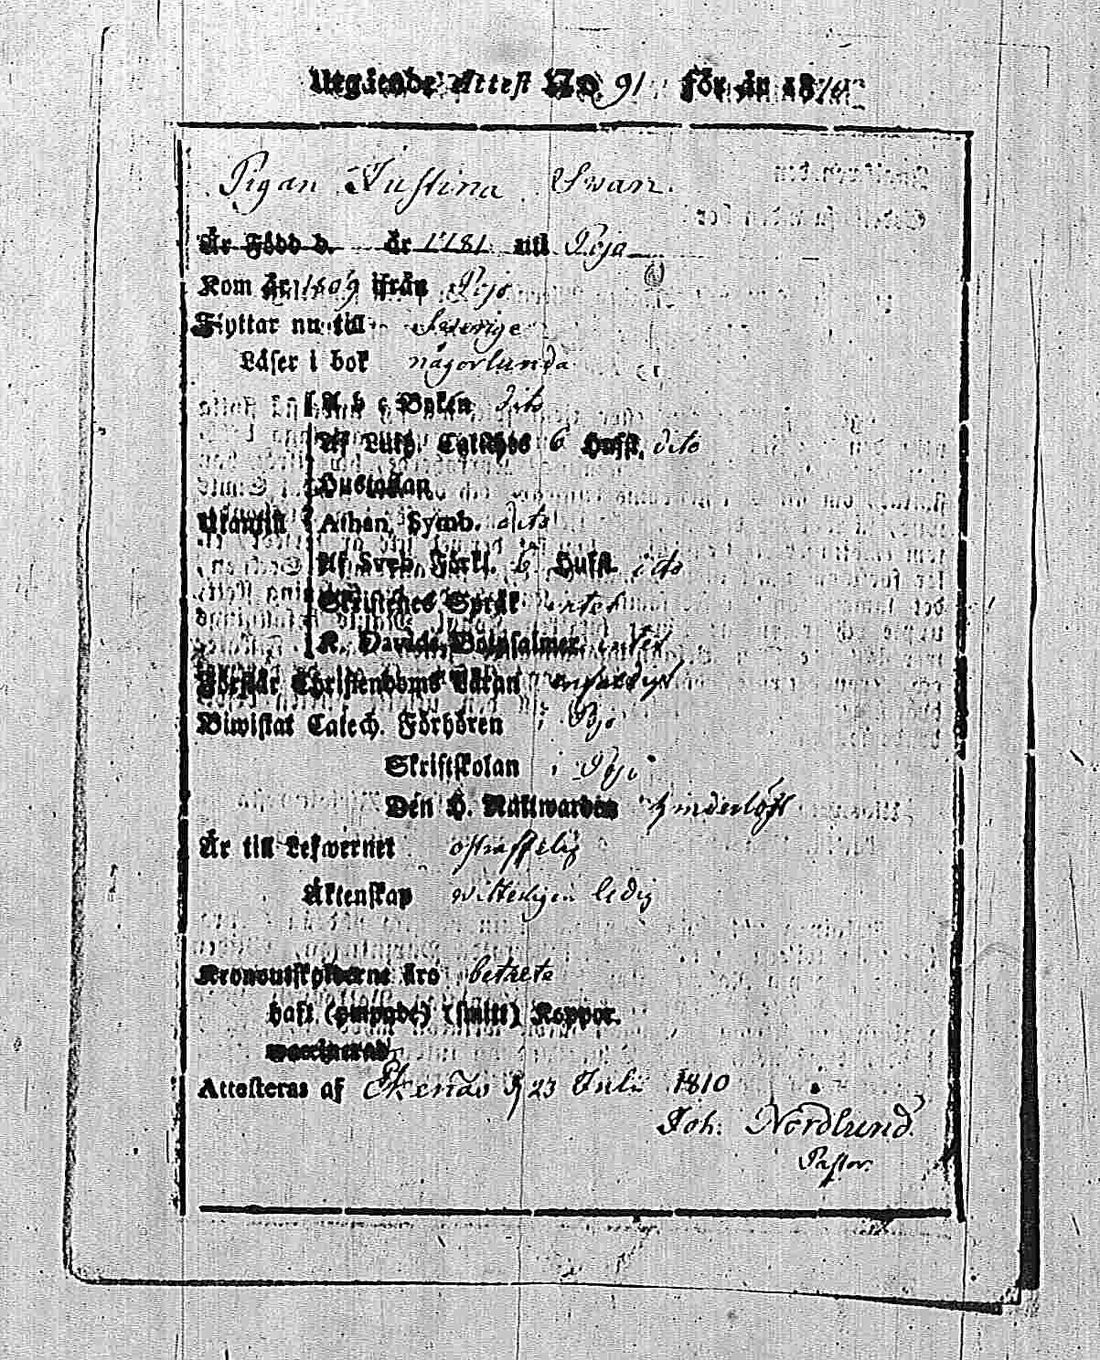 Utgående Attest No. 91 för år 1810
Pigan Justina Swan.
Är Född d. år 1781 uti Pojo
Kom år 1809 ifrån Pojo
Flyttar nu till Swerige
Läser i bok någorlunda
A b c Boken dito
Af Luth. Catches 6 Hufst. dito
Hustaflan
Utantill Athan. Symb. dito
Af Sveb. Förkl. 6 Hufst. ido
Skriftenes Språk intet
K. Davids Botpsalmer. intet
Förstår Christendoms Läran
Biwistat Catech. Förhören i Pojo
Skriftskolan i Pojo
Den H. Nattwarden
Är till Lefwernet ostraffelig
Äktenskap witterligen ledig
Kronoutskylderne äro betalte
haft (ympade) (smitt) Koppor.
waccinerad
Attesteras af Ekenäs d 23 Julii 1810
Joh. Nordlund.
Pastor.